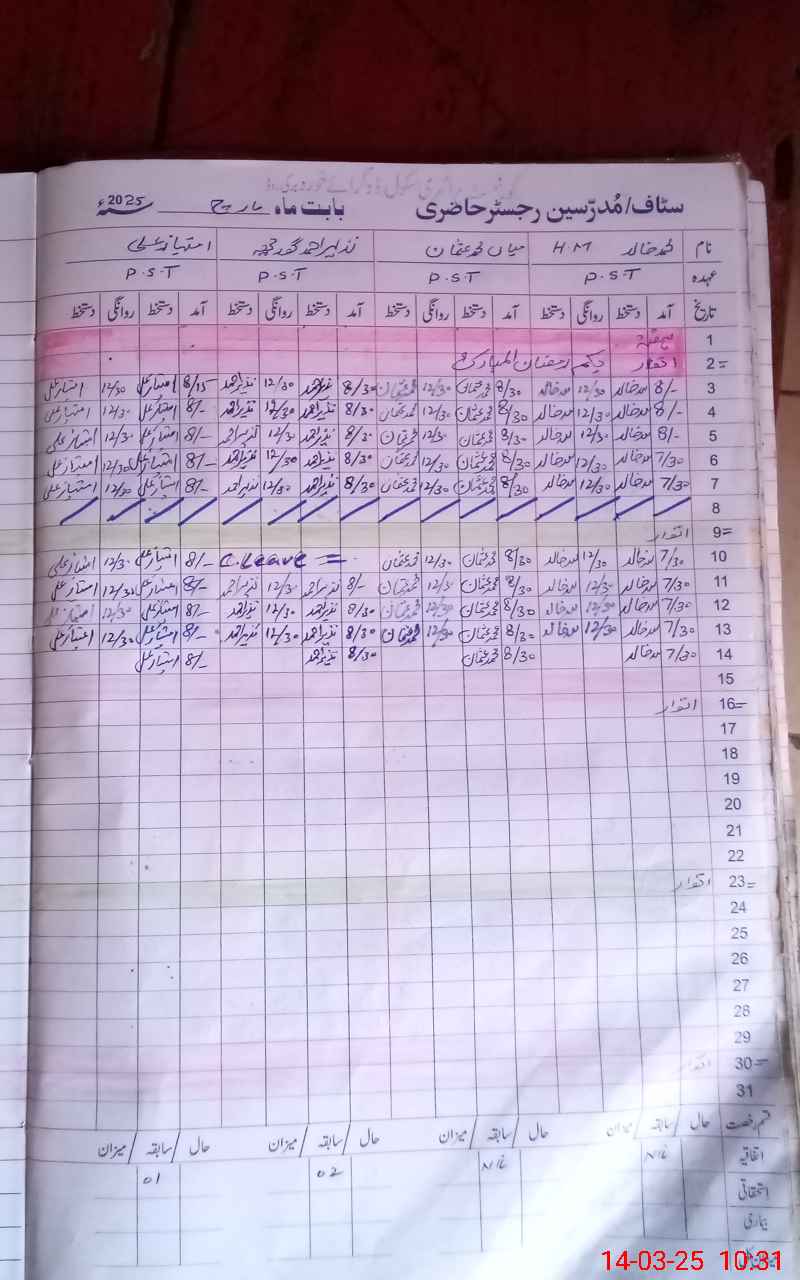 سٹاف/مُدرّسین رجسٹر حاضری بابت ماہ مارچ سنہ 2025ء
نام محمد خالد H.M میاں محمد عثمان نذیر احمد امتیاز علی
عہدہ P.S.T P.S.T P.S.T P.S.T
تاریخ آمد دستخط روانگی دستخط آمد دستخط روانگی دستخط آمد دستخط روانگی دستخط آمد دستخط روانگی دستخط
1 ہفتہ
2= اتوار یکم رمضان المبارک
3 8/- محمد خالد 12/30 محمد خالد 8/30 محمد عثمان 12/30 محمد عثمان 8/30 نذیر احمد 12/30 نذیر احمد 8/15 امتیاز علی 12/30 امتیاز علی
4 8/- محمد خالد 12/30 محمد خالد 8/30 محمد عثمان 12/30 محمد عثمان 8/30 نذیر احمد 12/30 نذیر احمد 8/- امتیاز علی 12/30 امتیاز علی
5 8/- محمد خالد 12/30 محمد خالد 8/30 محمد عثمان 12/30 محمد عثمان 8/30 نذیر احمد 12/30 نذیر احمد 8/- امتیاز علی 12/30 امتیاز علی
6 7/30 محمد خالد 12/30 محمد خالد 8/30 محمد عثمان 12/30 محمد عثمان 8/30 نذیر احمد 12/30 نذیر احمد 8/- امتیاز علی 12/30 امتیاز علی
7 7/30 محمد خالد 12/30 محمد خالد 8/30 محمد عثمان 12/30 محمد عثمان 8/30 نذیر احمد 12/30 نذیر احمد 8/- امتیاز علی 12/30 امتیاز علی
8
9= اتوار
10 7/30 محمد خالد 12/30 محمد خالد 8/30 محمد عثمان 12/30 محمد عثمان C.Leave = 8/- امتیاز علی 12/30 امتیاز علی
11 7/30 محمد خالد 12/30 محمد خالد 8/30 محمد عثمان 12/30 محمد عثمان 8/- نذیر احمد 12/30 نذیر احمد 8/- امتیاز علی 12/30 امتیاز علی
12 7/30 محمد خالد 12/30 محمد خالد 8/30 محمد عثمان 12/30 محمد عثمان 8/30 نذیر احمد 12/30 نذیر احمد 8/- امتیاز علی 12/30 امتیاز علی
13 7/30 محمد خالد 12/30 محمد خالد 8/30 محمد عثمان 12/30 محمد عثمان 8/30 نذیر احمد 12/30 نذیر احمد 8/- امتیاز علی 12/30 امتیاز علی
14 7/30 محمد خالد 8/30 محمد عثمان 8/30 نذیر احمد 8/- امتیاز علی
15
16= اتوار
17
18
19
20
21
22
23= اتوار
24
25
26
27
28
29
30= اتوار
31
قسم رخصت حال / سابقہ / میزان حال / سابقہ / میزان حال / سابقہ / میزان حال / سابقہ / میزان
اتفاقیہ Nil Nil 02 01
استحقاقی
بیماری
14-03-25 10:31